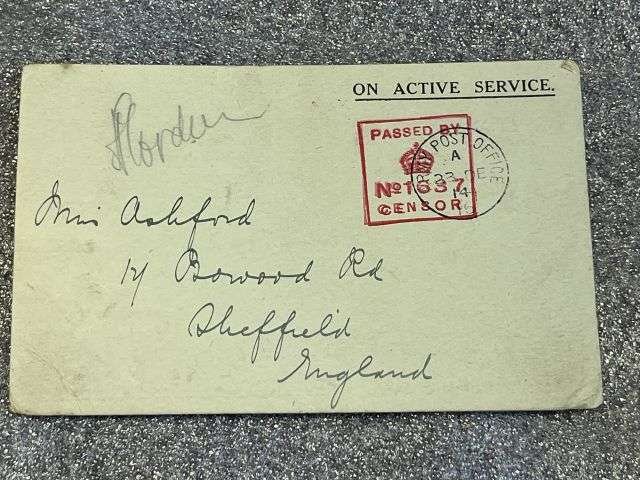 ON ACTIVE SERVICE.
PASSED BY
No 1637
CENSOR
ARMY POST OFFICE
A
23 DE
14
Miss Ashford
17 Bowood Rd
Sheffield
England